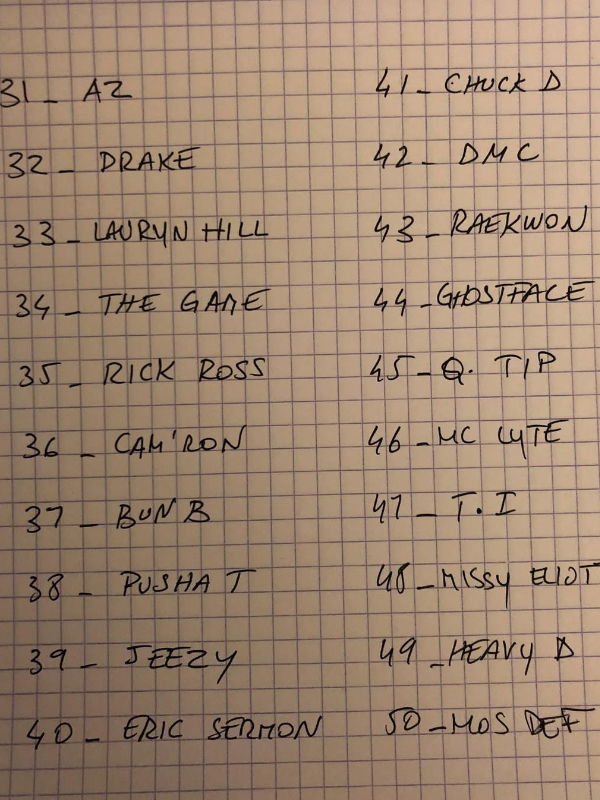 31_ AZ
32_ DRAKE
33_ LAURYN HILL
34_ THE GAME
35_ RICK ROSS
36_ CAM'RON
37_ BUN B
38_ PUSHA T
39_ JEEZY
40_ ERIC SERMON
41_ CHUCK D
42_ DMC
43_ RAEKWON
44_ GHOSTFACE
45_ Q. TIP
46_ MC LYTE
47_ T.I
48_ MISSY ELIOT
49_ HEAVY D
50_ MOS DEF